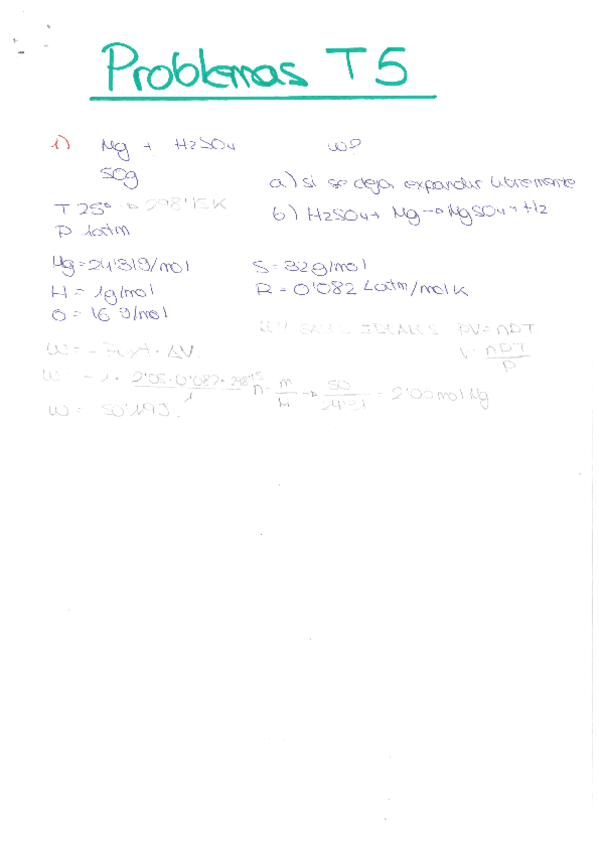 Problemas T5
1) Mg + H2SO4 W?
50g
a) si se deja expandir libremente
T 25° → 298'15K
b) H2SO4 + Mg → MgSO4 + H2
P 1atm
Mg = 24'31g/mol S = 32g/mol
H = 1g/mol R = 0'082 Latm/molK
O = 16 g/mol
LEY GASES IDEALES PV = nRT
W = - Pext · ΔV. V = nRT/P
W = - 1 · 2'05 · 0'082 · 298'15 / 1 n = m/M → 50/24'31 = 2'05 mol Mg
W = 50'19J.